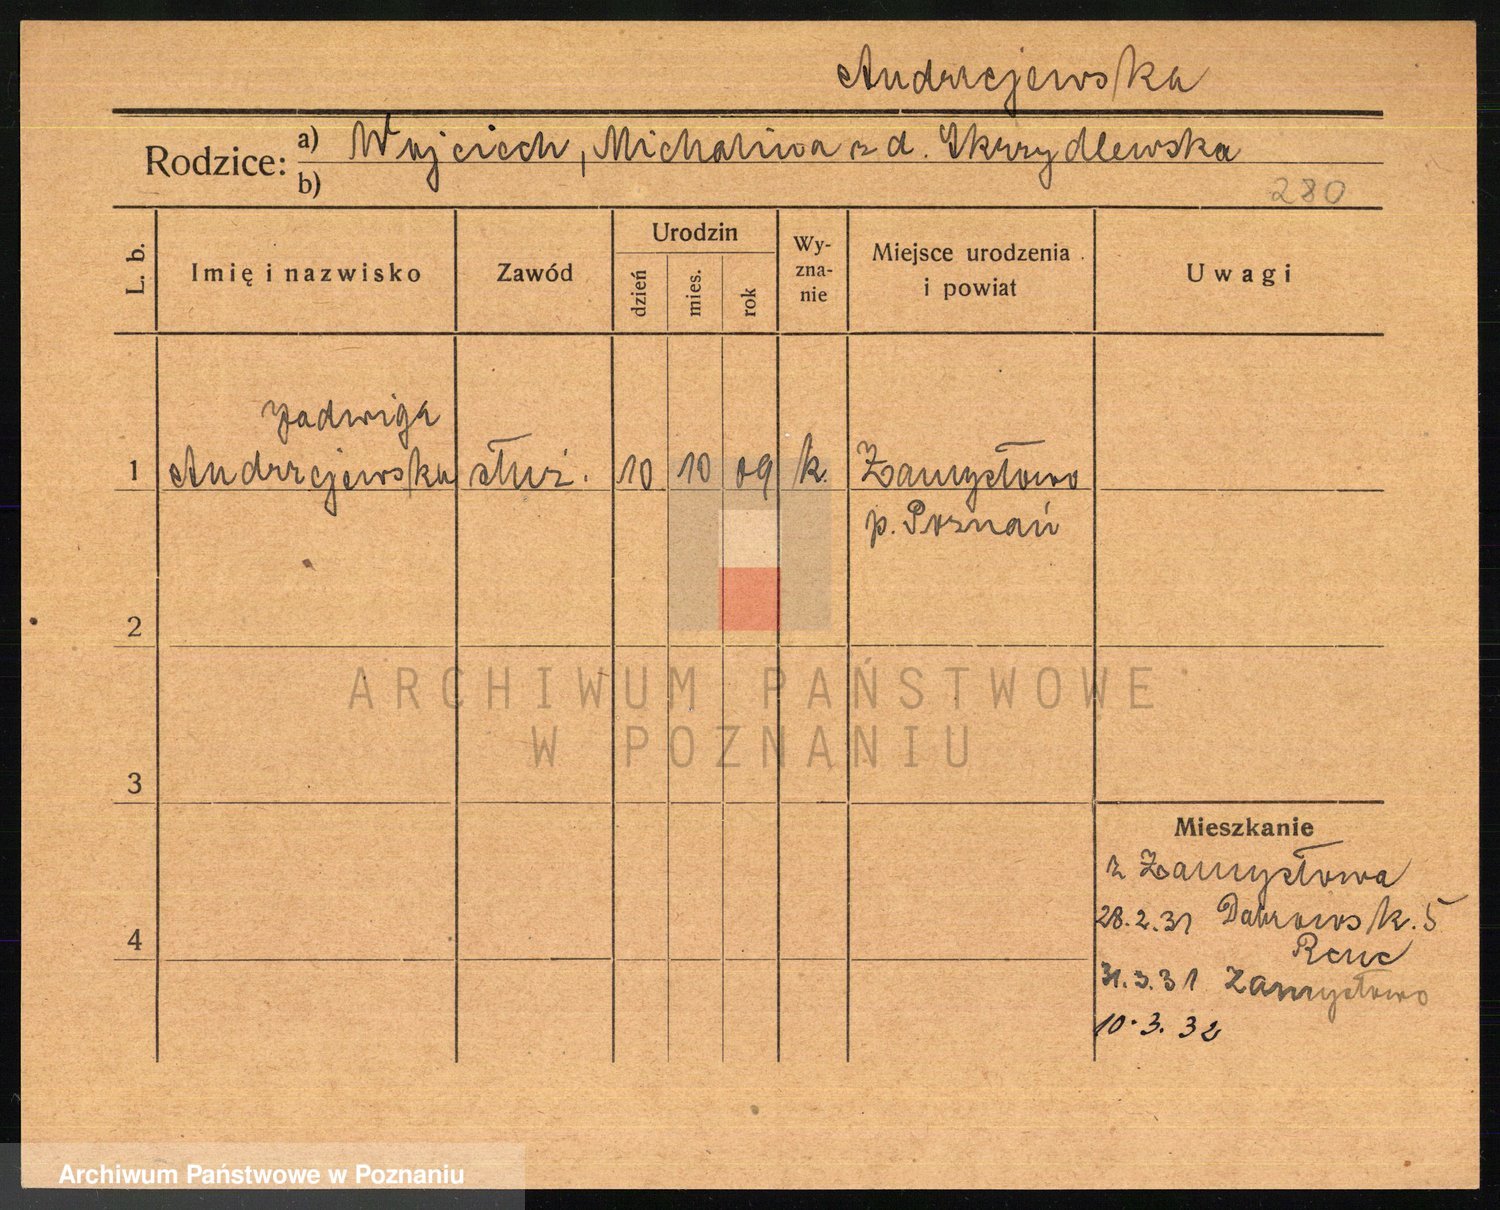 Andrzejewska
Rodzice: a) Wojciech, Michalina z d. Skrzydlewska
b)
280
L. b.
Imię i nazwisko
Zawód
Urodzin
dzień
mies.
rok
Wy-
zna-
nie
Miejsce urodzenia
i powiat
Uwagi
Jadwiga
1 Andrzejewska służ. 10 10 09 k. Zamysłowo
p. Poznań
2
ARCHIWUM PAŃSTWOWE
W POZNANIU
3
Mieszkanie
z Zamysłowa
28.2.31 Dąbrowsk. 5
4
31.3.31 Zamysłowo
10.3.32
Archiwum Państwowe w Poznaniu